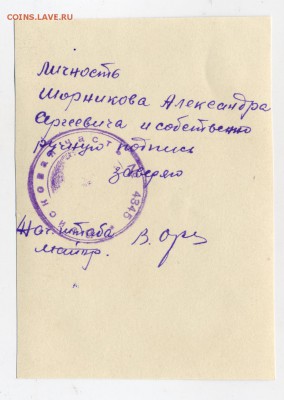 COINS.SU
COINS.LAVE.RU
Личность
Шорникова Александра
Сергеевича и собственно
ручную подпись
заверяю
ВОЙСКОВАЯ ЧАСТЬ 4346
Нач. штаба
майор. В. Орг